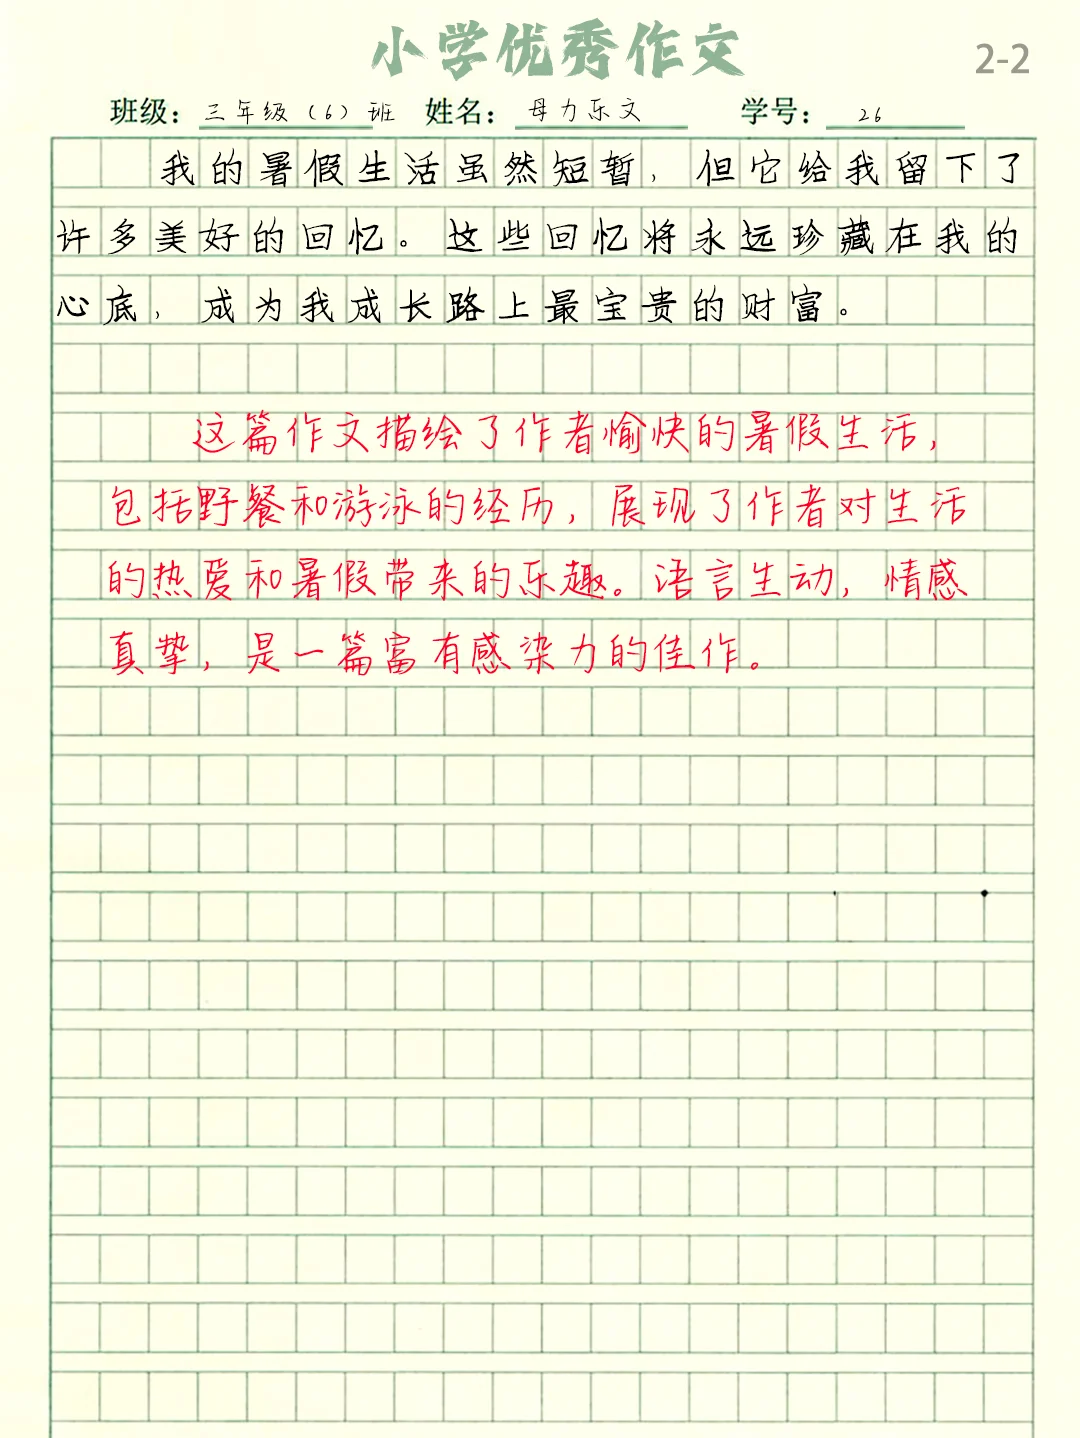 小学优秀作文
2-2
班级：三年级（6）班 姓名：母力乐文 学号：26
我的暑假生活虽然短暂，但它给我留下了
许多美好的回忆。这些回忆将永远珍藏在我的
心底，成为我成长路上最宝贵的财富。
这篇作文描绘了作者愉快的暑假生活，
包括野餐和游泳的经历，展现了作者对生活
的热爱和暑假带来的乐趣。语言生动，情感
真挚，是一篇富有感染力的佳作。